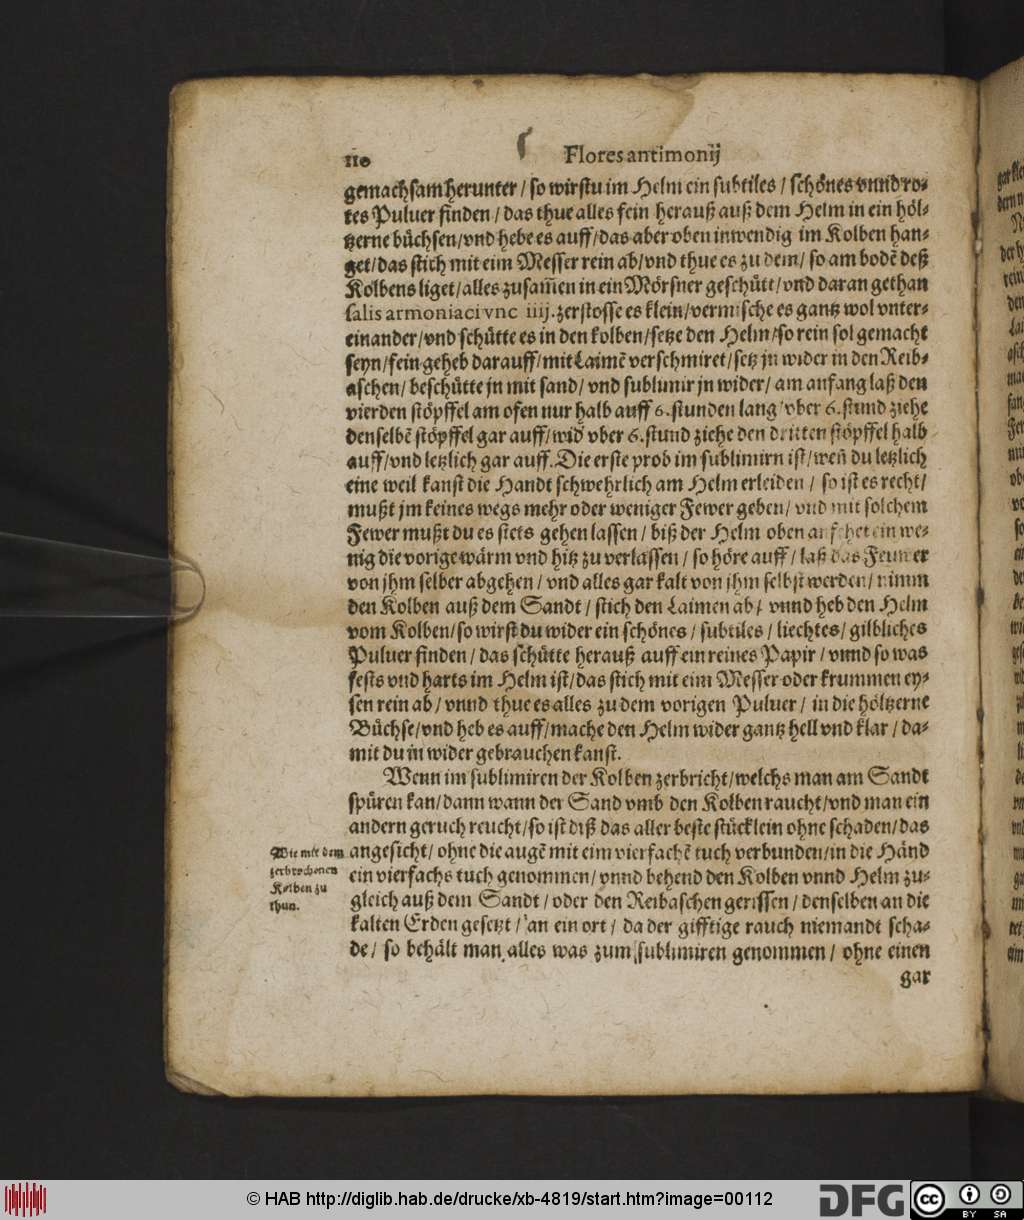 110 Flores antimonij
gemachsam herunter / so wirstu im Helm ein subtiles / schönes vnnd ro-
tes Puluer finden / das thue alles fein herauß auß dem Helm in ein höl-
tzerne büchsen/vnd hebe es auff/das aber oben inwendig im Kolben han-
get/das stich mit eim Messer rein ab/vnd thue es zu dem/ so am bodẽ deß
Kolbens liget/alles zusam̃en in ein Mörsner geschütt/ vnd daran gethan
salis armoniaci vnc iiij. zerstosse es klein/vermische es gantz wol vnter-
einander/vnd schütte es in den kolben/setze den Helm/so rein sol gemacht
seyn/fein geheb darauff/mit Laimẽ verschmiret/setz jn wider in den Reib-
aschen/ beschütte jn mit sand/ vnd sublimir jn wider/ am anfang laß den
vierden stöpffel am ofen nur halb auff 6. stunden lang/vber 6. stund ziehe
denselbẽ stöpffel gar auff/wid̃ vber 6. stund ziehe den dritten stöpffel halb
auff/vnd letzlich gar auff. Die erste prob im sublimirn ist/weñ du letzlich
eine weil kanst die Handt schwehrlich am Helm erleiden / so ist es recht/
mußt jm keines wegs mehr oder weniger Fewer geben/ vnd mit solchem
Fewer mußt du es stets gehen lassen / biß der Helm oben anfehet ein we-
nig die vorige wärm vnd hitz zu verlassen / so höre auff / laß das Fewer
von jhm selber abgehen / vnd alles gar kalt von jhm selbst werden/ nimm
den Kolben auß dem Sandt / stich den Laimen ab / vnnd heb den Helm
vom Kolben/so wirst du wider ein schönes / subtiles / liechtes/ gilbliches
Puluer finden / das schütte herauß auff ein reines Papir / vnnd so was
fests vnd harts im Helm ist/das stich mit eim Messer oder krummen ey-
sen rein ab/ vnnd thue es alles zu dem vorigen Puluer / in die höltzerne
Büchse/vnd heb es auff/mache den Helm wider gantz hell vnd klar / da-
mit du in wider gebrauchen kanst.
Wenn im sublimiren der Kolben zerbricht/welchs man am Sandt
spüren kan/dann wann der Sand vmb den Kolben raucht/vnd man ein
andern geruch reucht/so ist diß das aller beste stücklein ohne schaden/das
angesicht/ ohne die augẽ mit eim vierfachẽ tuch verbunden/in die Händ
ein vierfachs tuch genommen/vnnd behend den Kolben vnnd Helm zu-
gleich auß dem Sandt / oder den Reibaschen gerissen/ denselben an die
kalten Erden gesetzt/ an ein ort / da der gifftige rauch niemandt scha-
de/ so behält man alles was zum sublimiren genommen/ ohne einen
gar
Wie mit dem
zerbrochenen
Kolben zu
thun.
© HAB http://diglib.hab.de/drucke/xb-4819/start.htm?image=00112
DFG
CC BY SA